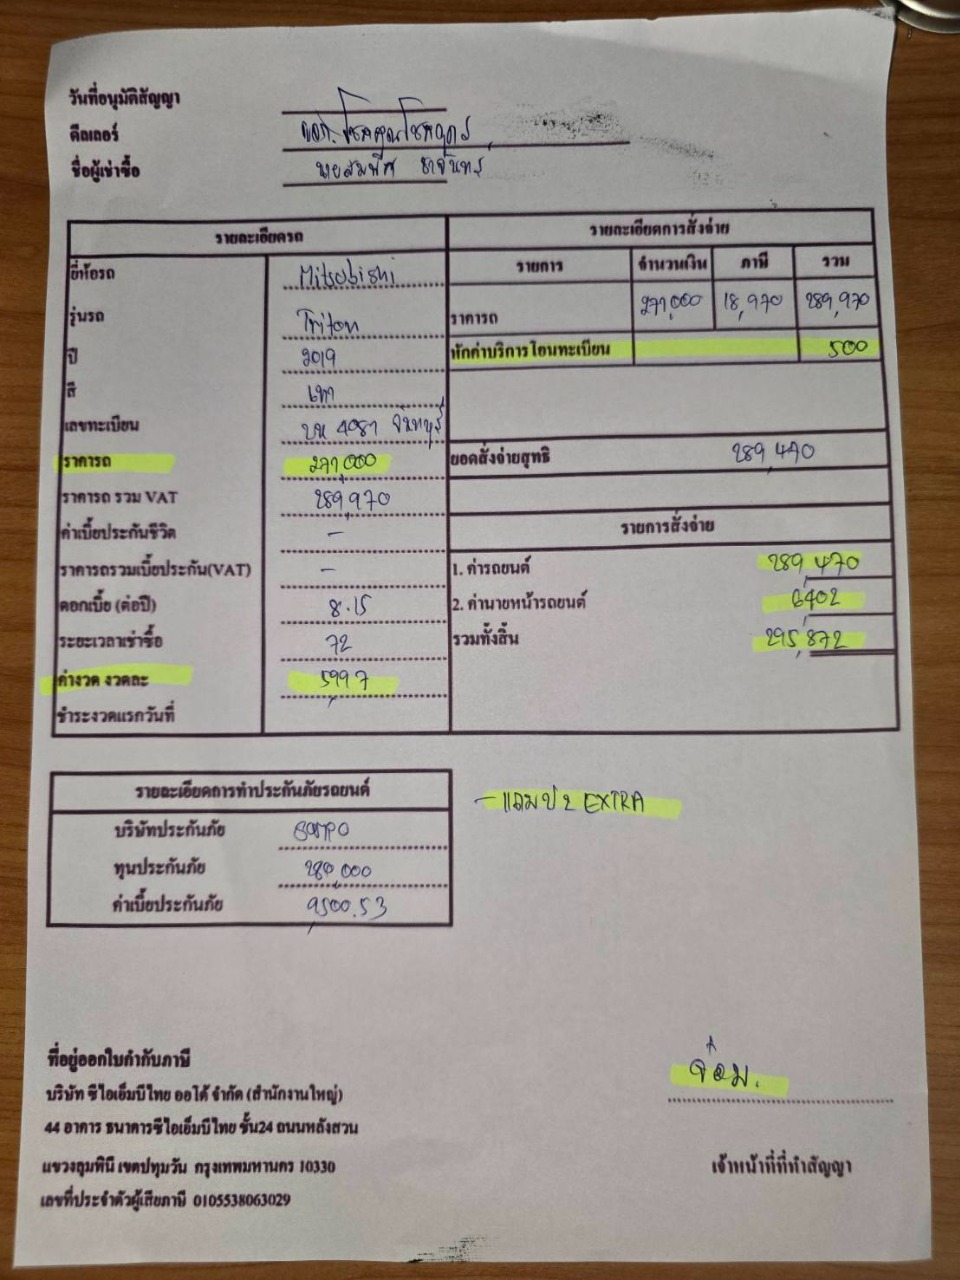 วันที่อนุมัติสัญญา
ดีลเลอร์
ชื่อผู้เช่าซื้อ นายสมพิศ
รายละเอียดรถ
ยี่ห้อรถ Mitsubishi
รุ่นรถ Triton
ปี 2019
สี เทา
เลขทะเบียน บน 4087 จันทบุรี
ราคารถ 271,000
ราคารถ รวม VAT 289,970
ค่าเบี้ยประกันชีวิต -
ราคารถรวมเบี้ยประกัน(VAT) -
ดอกเบี้ย (ต่อปี) 8.15
ระยะเวลาเช่าซื้อ 72
ค่างวด งวดละ 5,997
ชำระงวดแรกวันที่
รายละเอียดการสั่งจ่าย
รายการ จำนวนเงิน ภาษี รวม
ราคารถ 271,000 18,970 289,970
หักค่าบริการโอนทะเบียน 500
ยอดสั่งจ่ายสุทธิ 289,470
รายการสั่งจ่าย
1. ค่ารถยนต์ 289,470
2. ค่านายหน้ารถยนต์ 6,402
รวมทั้งสิ้น 295,872
รายละเอียดการทำประกันภัยรถยนต์
บริษัทประกันภัย SOMPO
ทุนประกันภัย 280,000
ค่าเบี้ยประกันภัย 9,500.53
- แถมป 2 EXTRA
ที่อยู่ออกใบกำกับภาษี
บริษัท ซีไอเอ็มบีไทย ออโต้ จำกัด (สำนักงานใหญ่)
44 อาคาร ธนาคารซีไอเอ็มบีไทย ชั้น24 ถนนหลังสวน
แขวงลุมพินี เขตปทุมวัน กรุงเทพมหานคร 10330
เลขที่ประจำตัวผู้เสียภาษี 0105538063029
จ๋อม.
เจ้าหน้าที่ที่ทำสัญญา